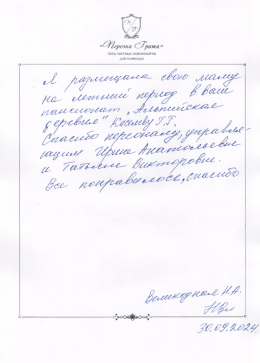 «Первая Грата»
Сеть частных пансионатов
для пожилых
Я размещала свою маму
на летний период в ваш
пансионат „Альпийская
деревня"
Спасибо персоналу, управля-
ющим Ирине Анатольевне
и Татьяне Викторовне.
Все понравилось, спасибо
Великодная Н.А.
30.09.2024